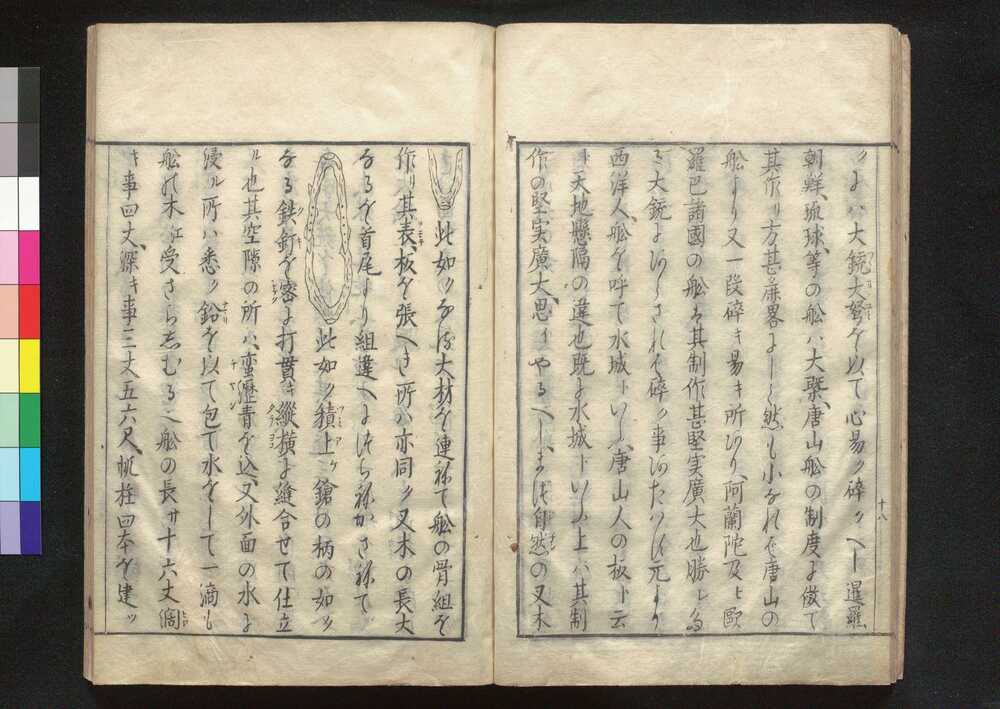 クハ大銃大弩を以て心易ク碎クヘし暹羅
朝鮮、琉球、等の舩ハ大槩、唐山舩の制度に倣て
其作リ方甚麁畧にして然も小なれは唐山の
舩より又一段碎キ易キ所あり、阿蘭陀及ヒ歐
羅巴諸國の舩は其制作甚堅実廣大也勝レ
る大銃にあらされは碎ク事あたハす元より
西洋人、舩を呼て水城トいふ、唐山人の板ト云
ト天地懸隔の違也既に水城トいふ上ハ其制
作の堅実廣大、思イやるへしまつ自然の又木
此如クなる大材を連ねて舩の骨組を
作リ其表、板を張へき所ハ亦同ク又木の長大
なるを首尾より組違へにすらねかさねて
此如ク積上ケ鎗の柄の如ク
なる鉄釘を密に打貫キ縱橫に縫合せて仕立
ル也其空隙の所ハ、蛮瀝青を込、又外面の水に
浸ル所ハ悉ク鉛を以て包て水をして一滴も
舩の木に受さらしむる也舩の長サ十六丈濶
キ事四丈、深キ事三丈五六尺、帆柱四本を建ツ
十八